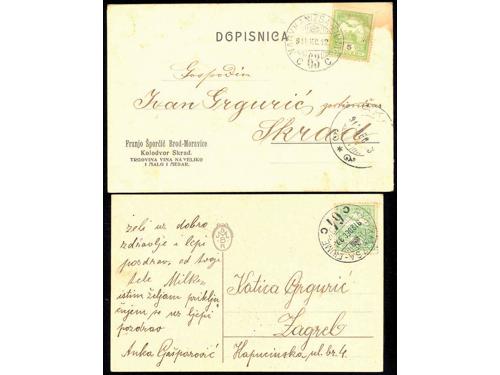 DOPISNICA
5
63
Gospodin
Ivan Grgurić
Skrad
Franjo Šporčić Brod-Moravice
Kolodvor Skrad.
TRGOVINA VINA NA VELIKO
I MALO I MEDAR.
želi uz dobro
zdravlje i lepi
pozdrav od tvoje
tete Milke
istim željam priklju
čujem se uz ljepi
pozdrav
Anka Gašparović
67
Katica Grgurić
Zagreb
Kapucinska ul. br. 4.